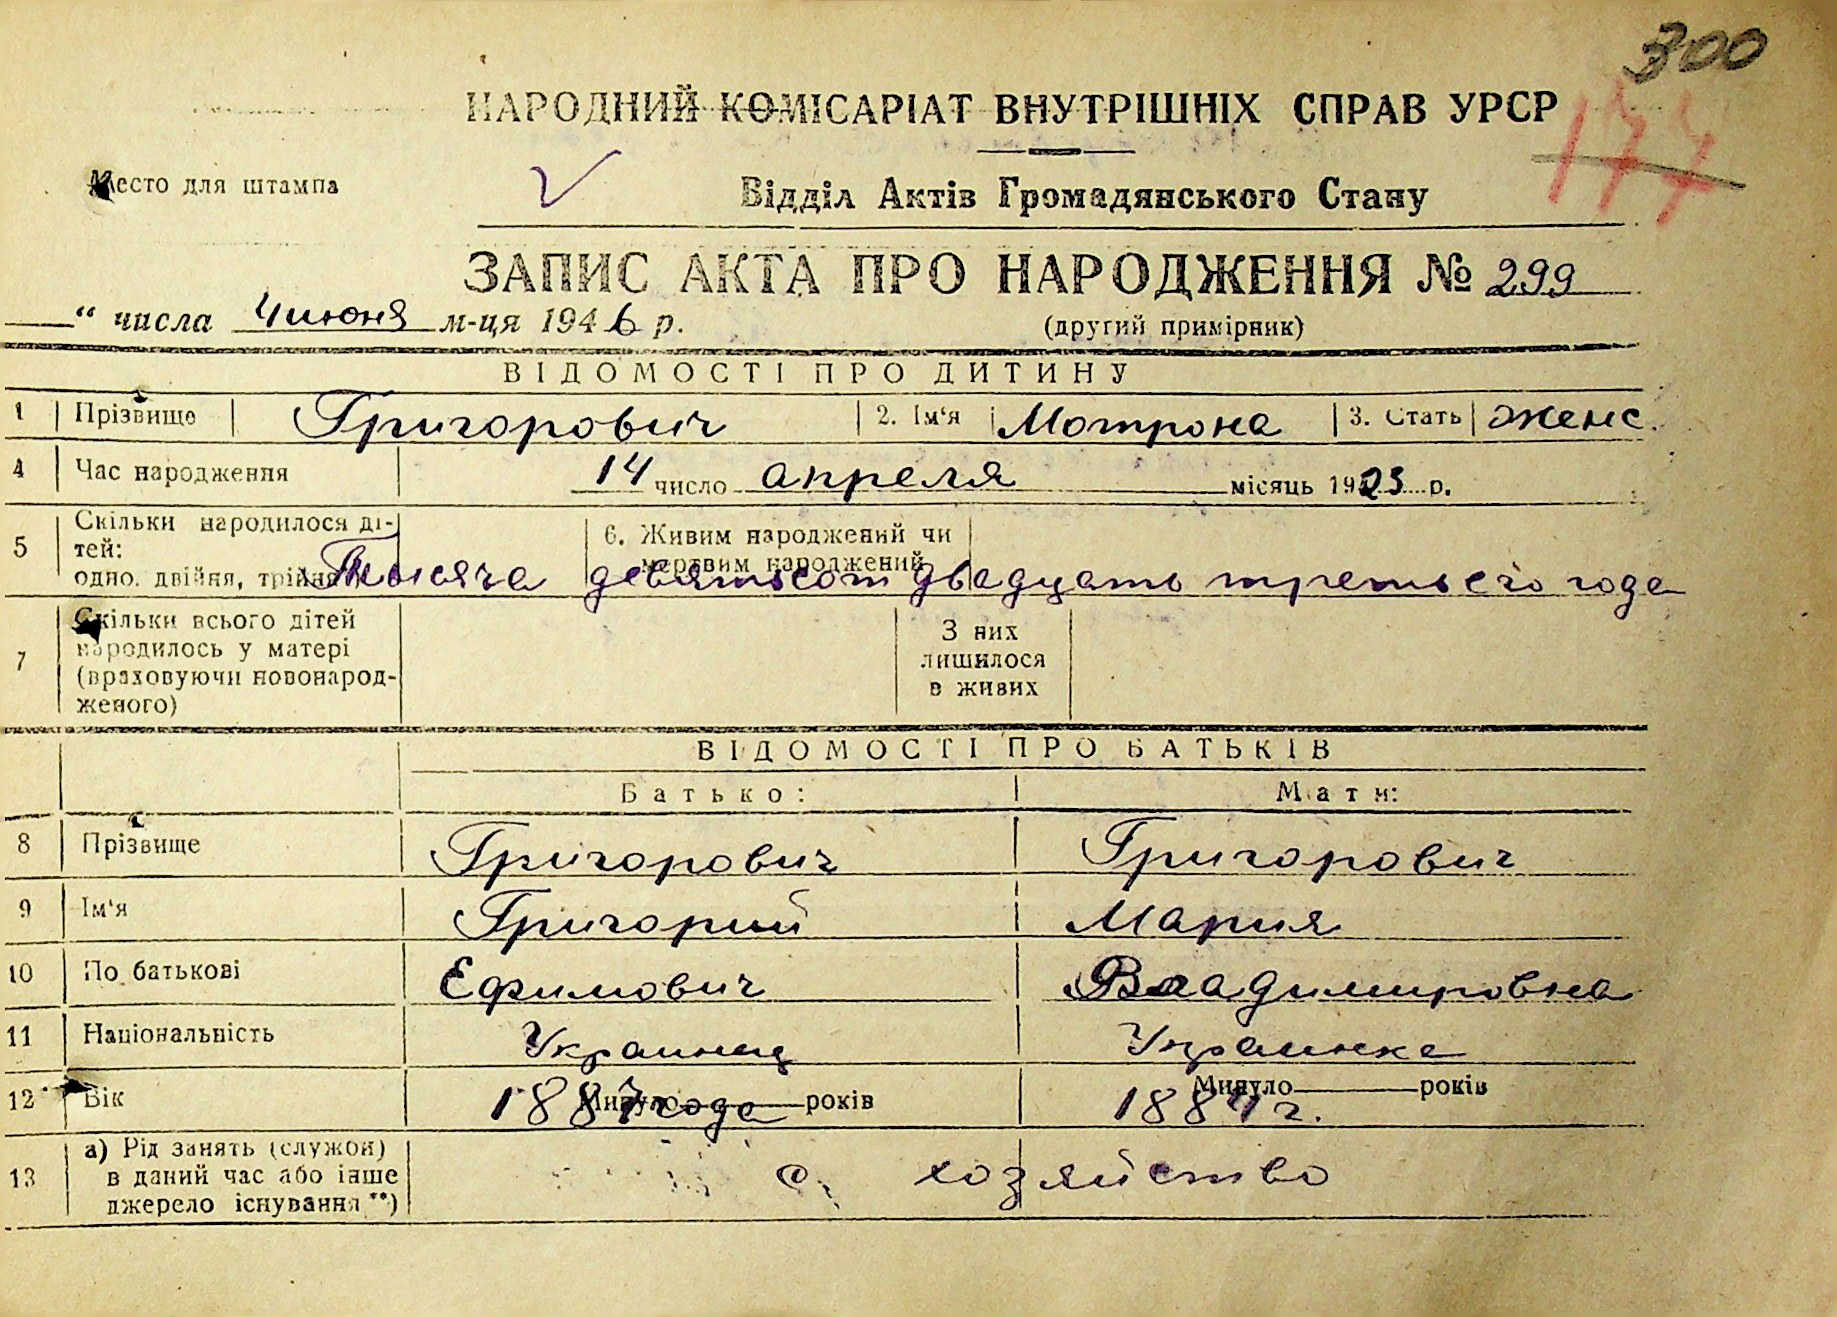 300
НАРОДНИЙ КОМІСАРІАТ ВНУТРІШНІХ СПРАВ УРСР
177
Место для штампа
Відділ Актів Громадянського Стану
ЗАПИС АКТА ПРО НАРОДЖЕННЯ № 299
“ числа 4 июня м-ця 1946 р.
(другий примірник)
ВІДОМОСТІ ПРО ДИТИНУ
1 Прізвище Григорович 2. Ім'я Мотрона 3. Стать женс.
4 Час народження 14 число апреля місяць 1923 р.
5 Скільки народилося ді-
тей:
одно, двійня, трійня
6. Живим народжений чи
мертвим народжений
Тысяча девятьсот двадцать третьего года
7 Скільки всього дітей
народилось у матері
(враховуючи новонарод-
женого)
З них
лишилося
в живих
ВІДОМОСТІ ПРО БАТЬКІВ
Батько: Мати:
8 Прізвище Григорович Григорович
9 Ім'я Григорий Мария
10 По батькові Ефимович Владимировна
11 Національність Украинец Украинка
12 Вік Минуло років 1887 года Минуло років 1884 г.
13 а) Рід занять (служби)
в даний час або інше
джерело існування **)
с. хозяйство